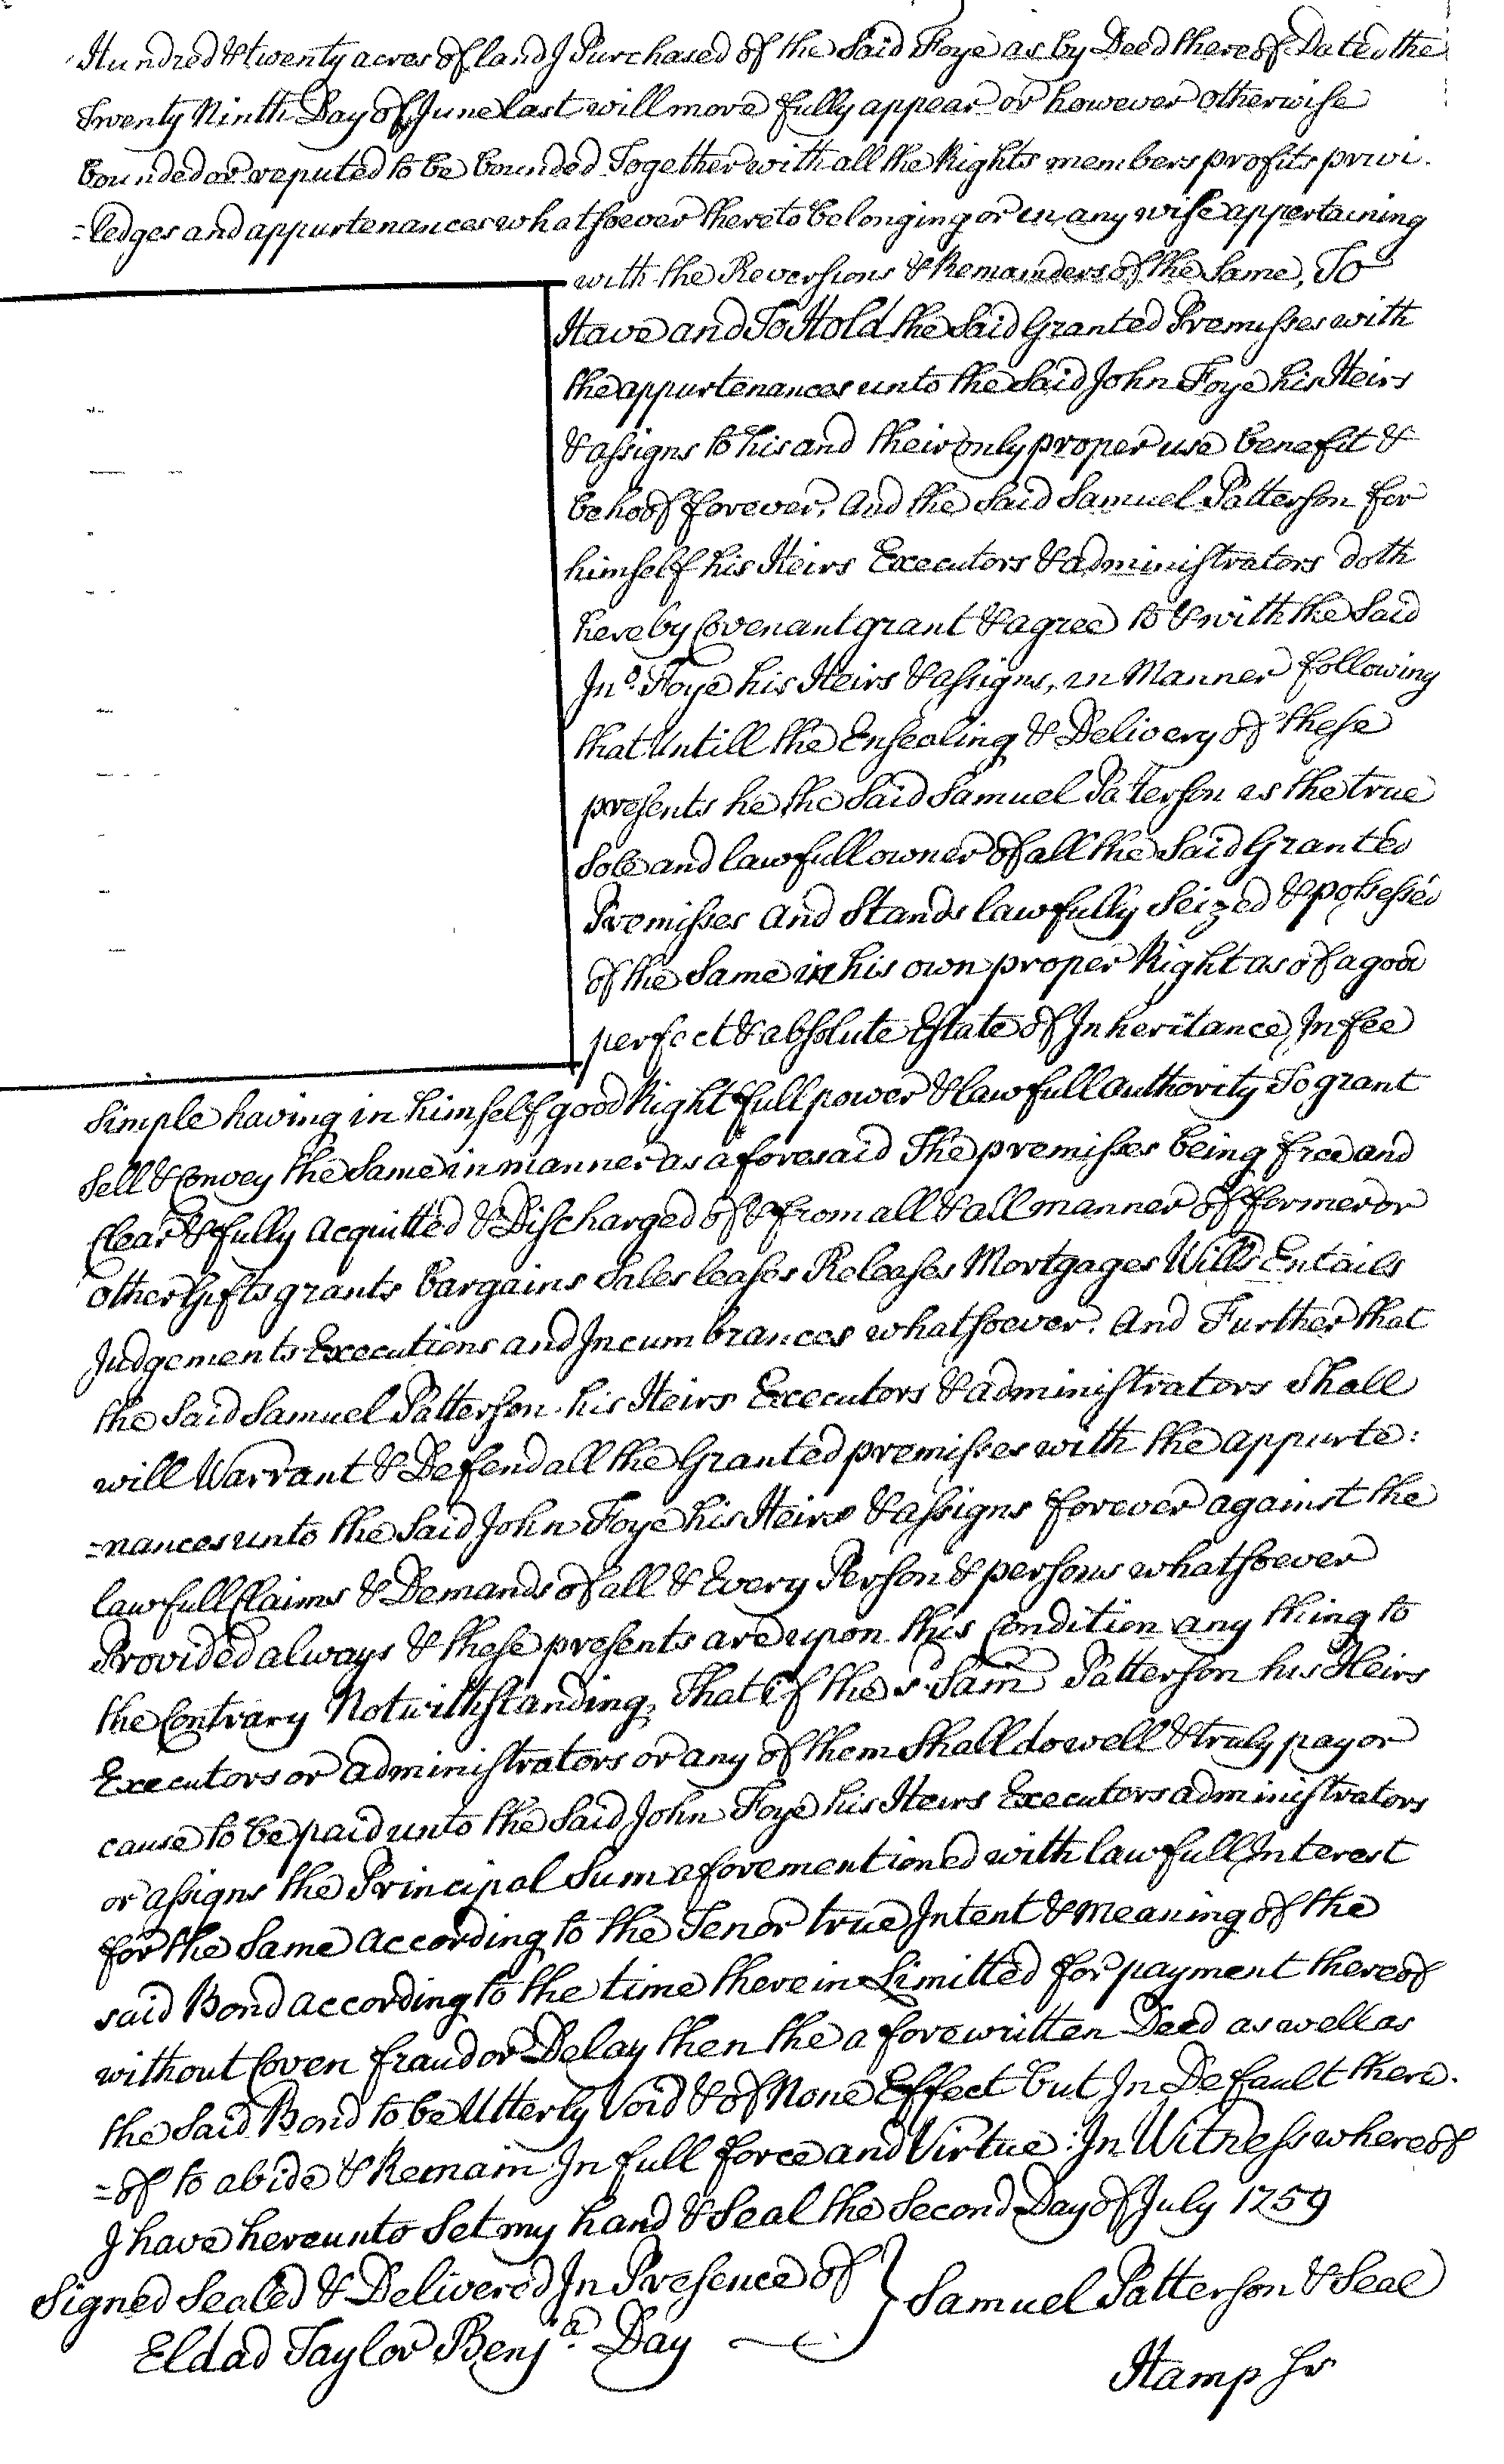 Hundred & twenty acres of land I Purchased of the Said Foye as by Deed thereof Dated the
Twenty Ninth Day of June last will more fully appear or however otherwise
bounded or reputed to be bounded Together with all the Rights members profits privi-
=ledges and appurtenances whatsoever thereto belonging or in any wise appertaining
with the Reversions & Remainders of the Same, To
Have and To Hold the Said Granted Premisses with
the appurtenances unto the Said John Foye his Heirs
& assigns to his and their only proper use benefit &
behoof forever, And the Said Samuel Patterson for
himself his Heirs Executors & administrators doth
hereby Covenant grant & agree to & with the Said
Jno. Foye his Heirs & assigns, in Manner following
that Untill the Ensealing & Delivery of these
presents he the Said Samuel Patterson is the true
Sole and lawfull owner of all the Said Granted
Premisses and Stands lawfully Seized & possessed
of the Same in his own proper Right as of a good
perfect & absolute Estate of Inheritance, In fee
Simple having in himself good Right full power & lawfull authority To grant
Sell & Convey the Same in manner as aforesaid The premisses being free and
Clear & fully acquitted & Discharged of & from all & all manner of former or
other Gifts grants bargains Sales leases Releases Mortgages Wills Entails
Judgements Executions and Incumbrances whatsoever. And Further that
the Said Samuel Patterson his Heirs Executors & administrators Shall
will Warrant & Defend all the Granted premisses with the appurte:
=nances unto the Said John Foye his Heirs & assigns forever against the
lawfull Claims & Demands of all & Every Person & persons whatsoever
Provided always & these presents are upon this Condition any thing to
the Contrary Notwithstanding, That if the sd. Saml Patterson his Heirs
Executors or administrators or any of them Shall do well & truly pay or
cause to be paid unto the Said John Foye his Heirs Executors administrators
or assigns the Principal Sum aforementioned with lawfull Interest
for the Same according to the Tenor true Intent & meaning of the
said Bond according to the time therein Limitted for payment thereof
without Coven fraud or Delay then the aforewritten Deed as well as
the Said Bond to be Utterly Void & of None Effect but In Default there-
=of to abide & Remain In full force and Virtue: In Witness whereof
I have hereunto Set my hand & Seal the Second Day of July 1759
Signed Sealed & Delivered In Presence of } Samuel Patterson & Seal
Eldad Taylor Benja. Day